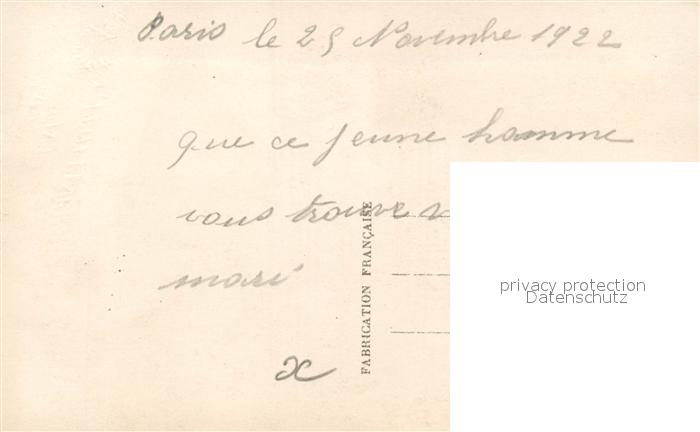 Paris le 25 Novembre 1922
que ce jeune homme
vous trouve
mari
x
FABRICATION FRANÇAISE
privacy protection
Datenschutz